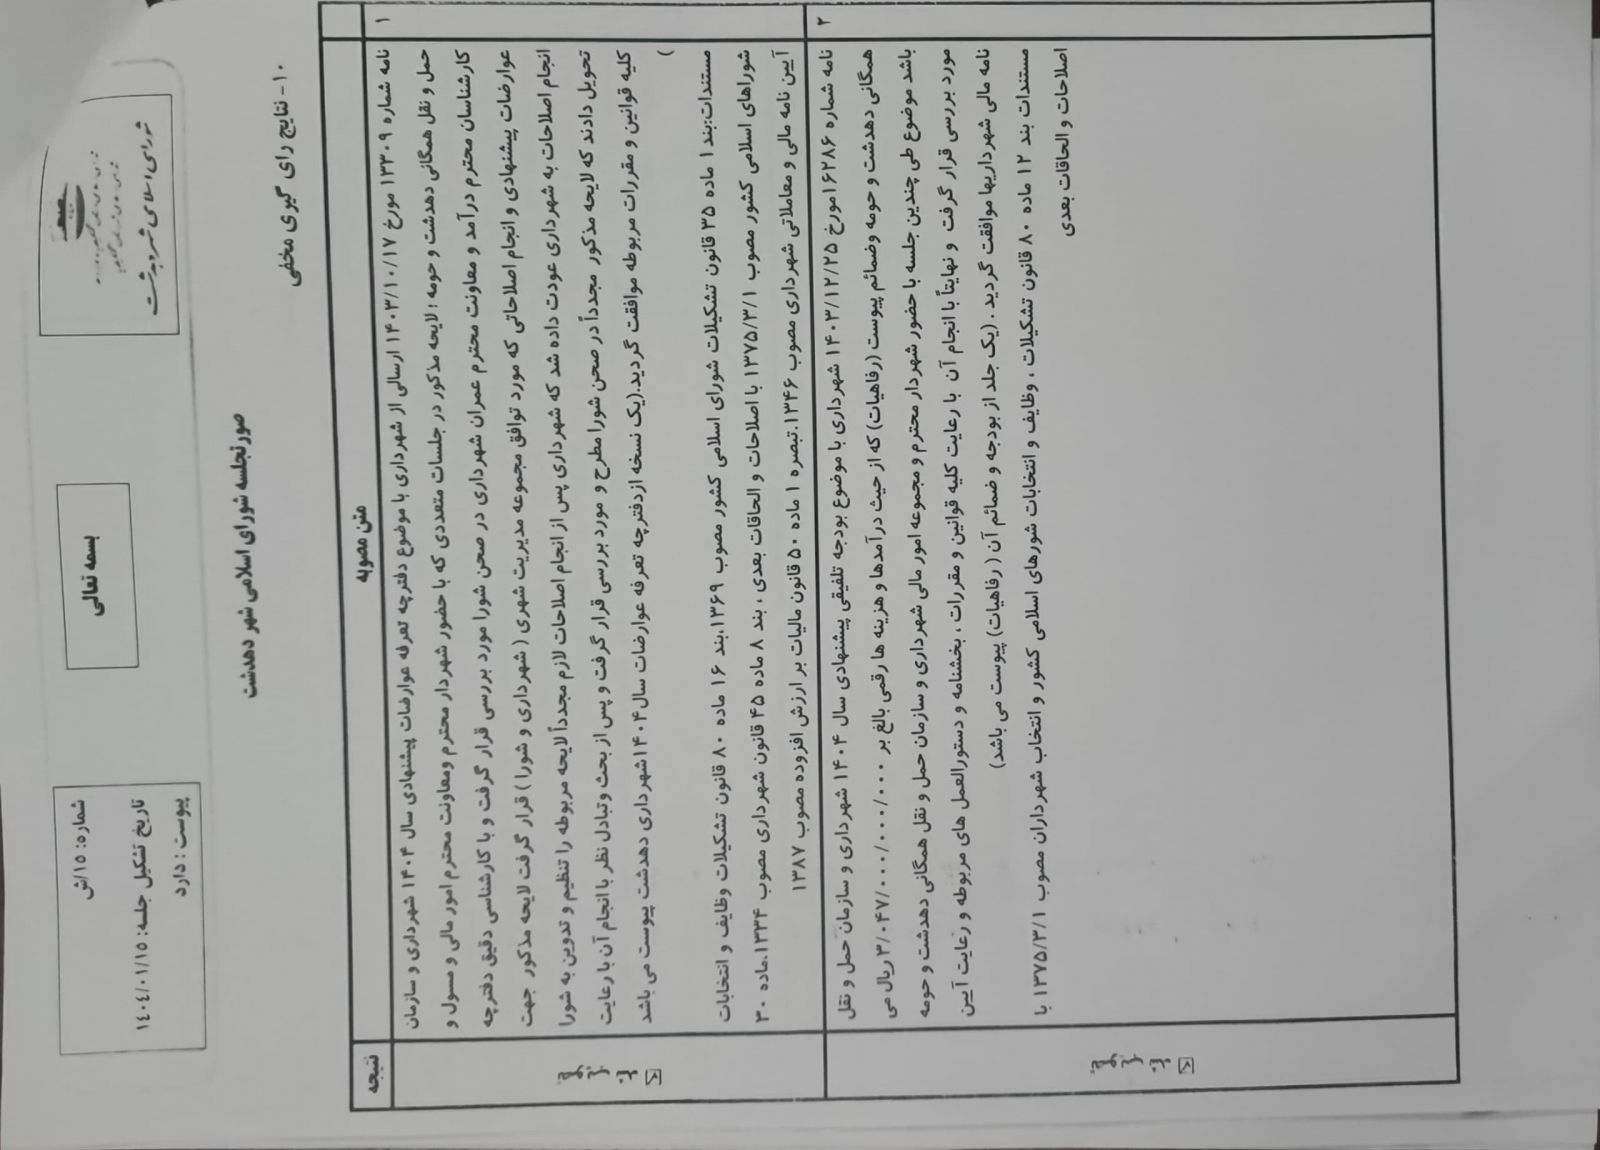 بسمه تعالی
شماره: ۱۵/ش
تاریخ تشکیل جلسه: ۱٤۰٤/۰۱/۱٥
پیوست : دارد
شورای اسلامی شهر دهدشت
صورتجلسه شورای اسلامی شهر دهدشت
۱۰- نتایج رای گیری مخفی
متن مصوبه
نتیجه
۱
نامه شماره ۱۳۳۰۹ مورخ ۱۴۰۳/۱۰/۱۷ ارسالی از شهرداری با موضوع دفترچه تعرفه عوارضات پیشنهادی سال ۱۴۰۴ شهرداری و سازمان
حمل و نقل همگانی دهدشت و حومه ؛ لایحه مذکور در جلسات متعددی که با حضور شهردار محترم ومعاونت محترم امور مالی و مسول و
کارشناسان محترم درآمد و معاونت محترم عمران شهرداری در صحن شورا مورد بررسی قرار گرفت و با کارشناسی دقیق دفترچه
عوارضات پیشنهادی و انجام اصلاحاتی که مورد توافق مجموعه مدیریت شهری ( شهرداری و شورا ) قرار گرفت لایحه مذکور جهت
انجام اصلاحات به شهرداری عودت داده شد که شهرداری پس از انجام اصلاحات لازم مجدداً لایحه مربوطه را تنظیم و تدوین به شورا
تحویل دادند که لایحه مذکور مجدداً در صحن شورا مطرح و مورد بررسی قرار گرفت و پس از بحث وتبادل نظر با انجام آن با رعایت
کلیه قوانین و مقررات مربوطه موافقت گردید.(یک نسخه ازدفترچه تعرفه عوارضات سال ۱۴۰۴شهرداری دهدشت پیوست می باشد
)
مستندات:بند۱ ماده ۳۵ قانون تشکیلات شورای اسلامی کشور مصوب ۱۳۶۹،بند ۱۶ ماده ۸۰ قانون تشکیلات وظایف و انتخابات
شوراهای اسلامی کشور مصوب ۱۳۷۵/۳/۱ با اصلاحات و الحاقات بعدی ، بند ۸ ماده ۴۵ قانون شهرداری مصوب ۱۳۳۴،ماده ۳۰
آیین نامه مالی و معاملاتی شهرداری مصوب ۱۳۴۶،تبصره ۱ ماده ۵۰ قانون مالیات بر ارزش افزوده مصوب ۱۳۸۷
۲
نامه شماره ۱۶۲۸۶مورخ ۱۴۰۳/۱۲/۲۵ شهرداری با موضوع بودجه تلفیقی پیشنهادی سال ۱۴۰۴ شهرداری و سازمان حمل و نقل
همگانی دهدشت و حومه وضمائم پیوست (رفاهیات) که از حیث درآمدها و هزینه ها رقمی بالغ بر ۳/۰۴۷/۰۰۰/۰۰۰/۰۰۰ریال می
باشد موضوع طی چندین جلسه با حضور شهردار محترم و مجموعه امور مالی شهرداری و سازمان حمل و نقل همگانی دهدشت و حومه
مورد بررسی قرار گرفت و نهایتاً با انجام آن با رعایت کلیه قوانین و مقررات ، بخشنامه و دستورالعمل های مربوطه و رعایت آیین
نامه مالی شهرداریها موافقت گردید . (یک جلد از بودجه و ضمائم آن ( رفاهیات) پیوست می باشد)
مستندات بند ۱۲ ماده ۸۰ قانون تشکیلات ، وظایف و انتخابات شورهای اسلامی کشور و انتخاب شهرداران مصوب ۱۳۷۵/۳/۱ با
اصلاحات و الحاقات بعدی